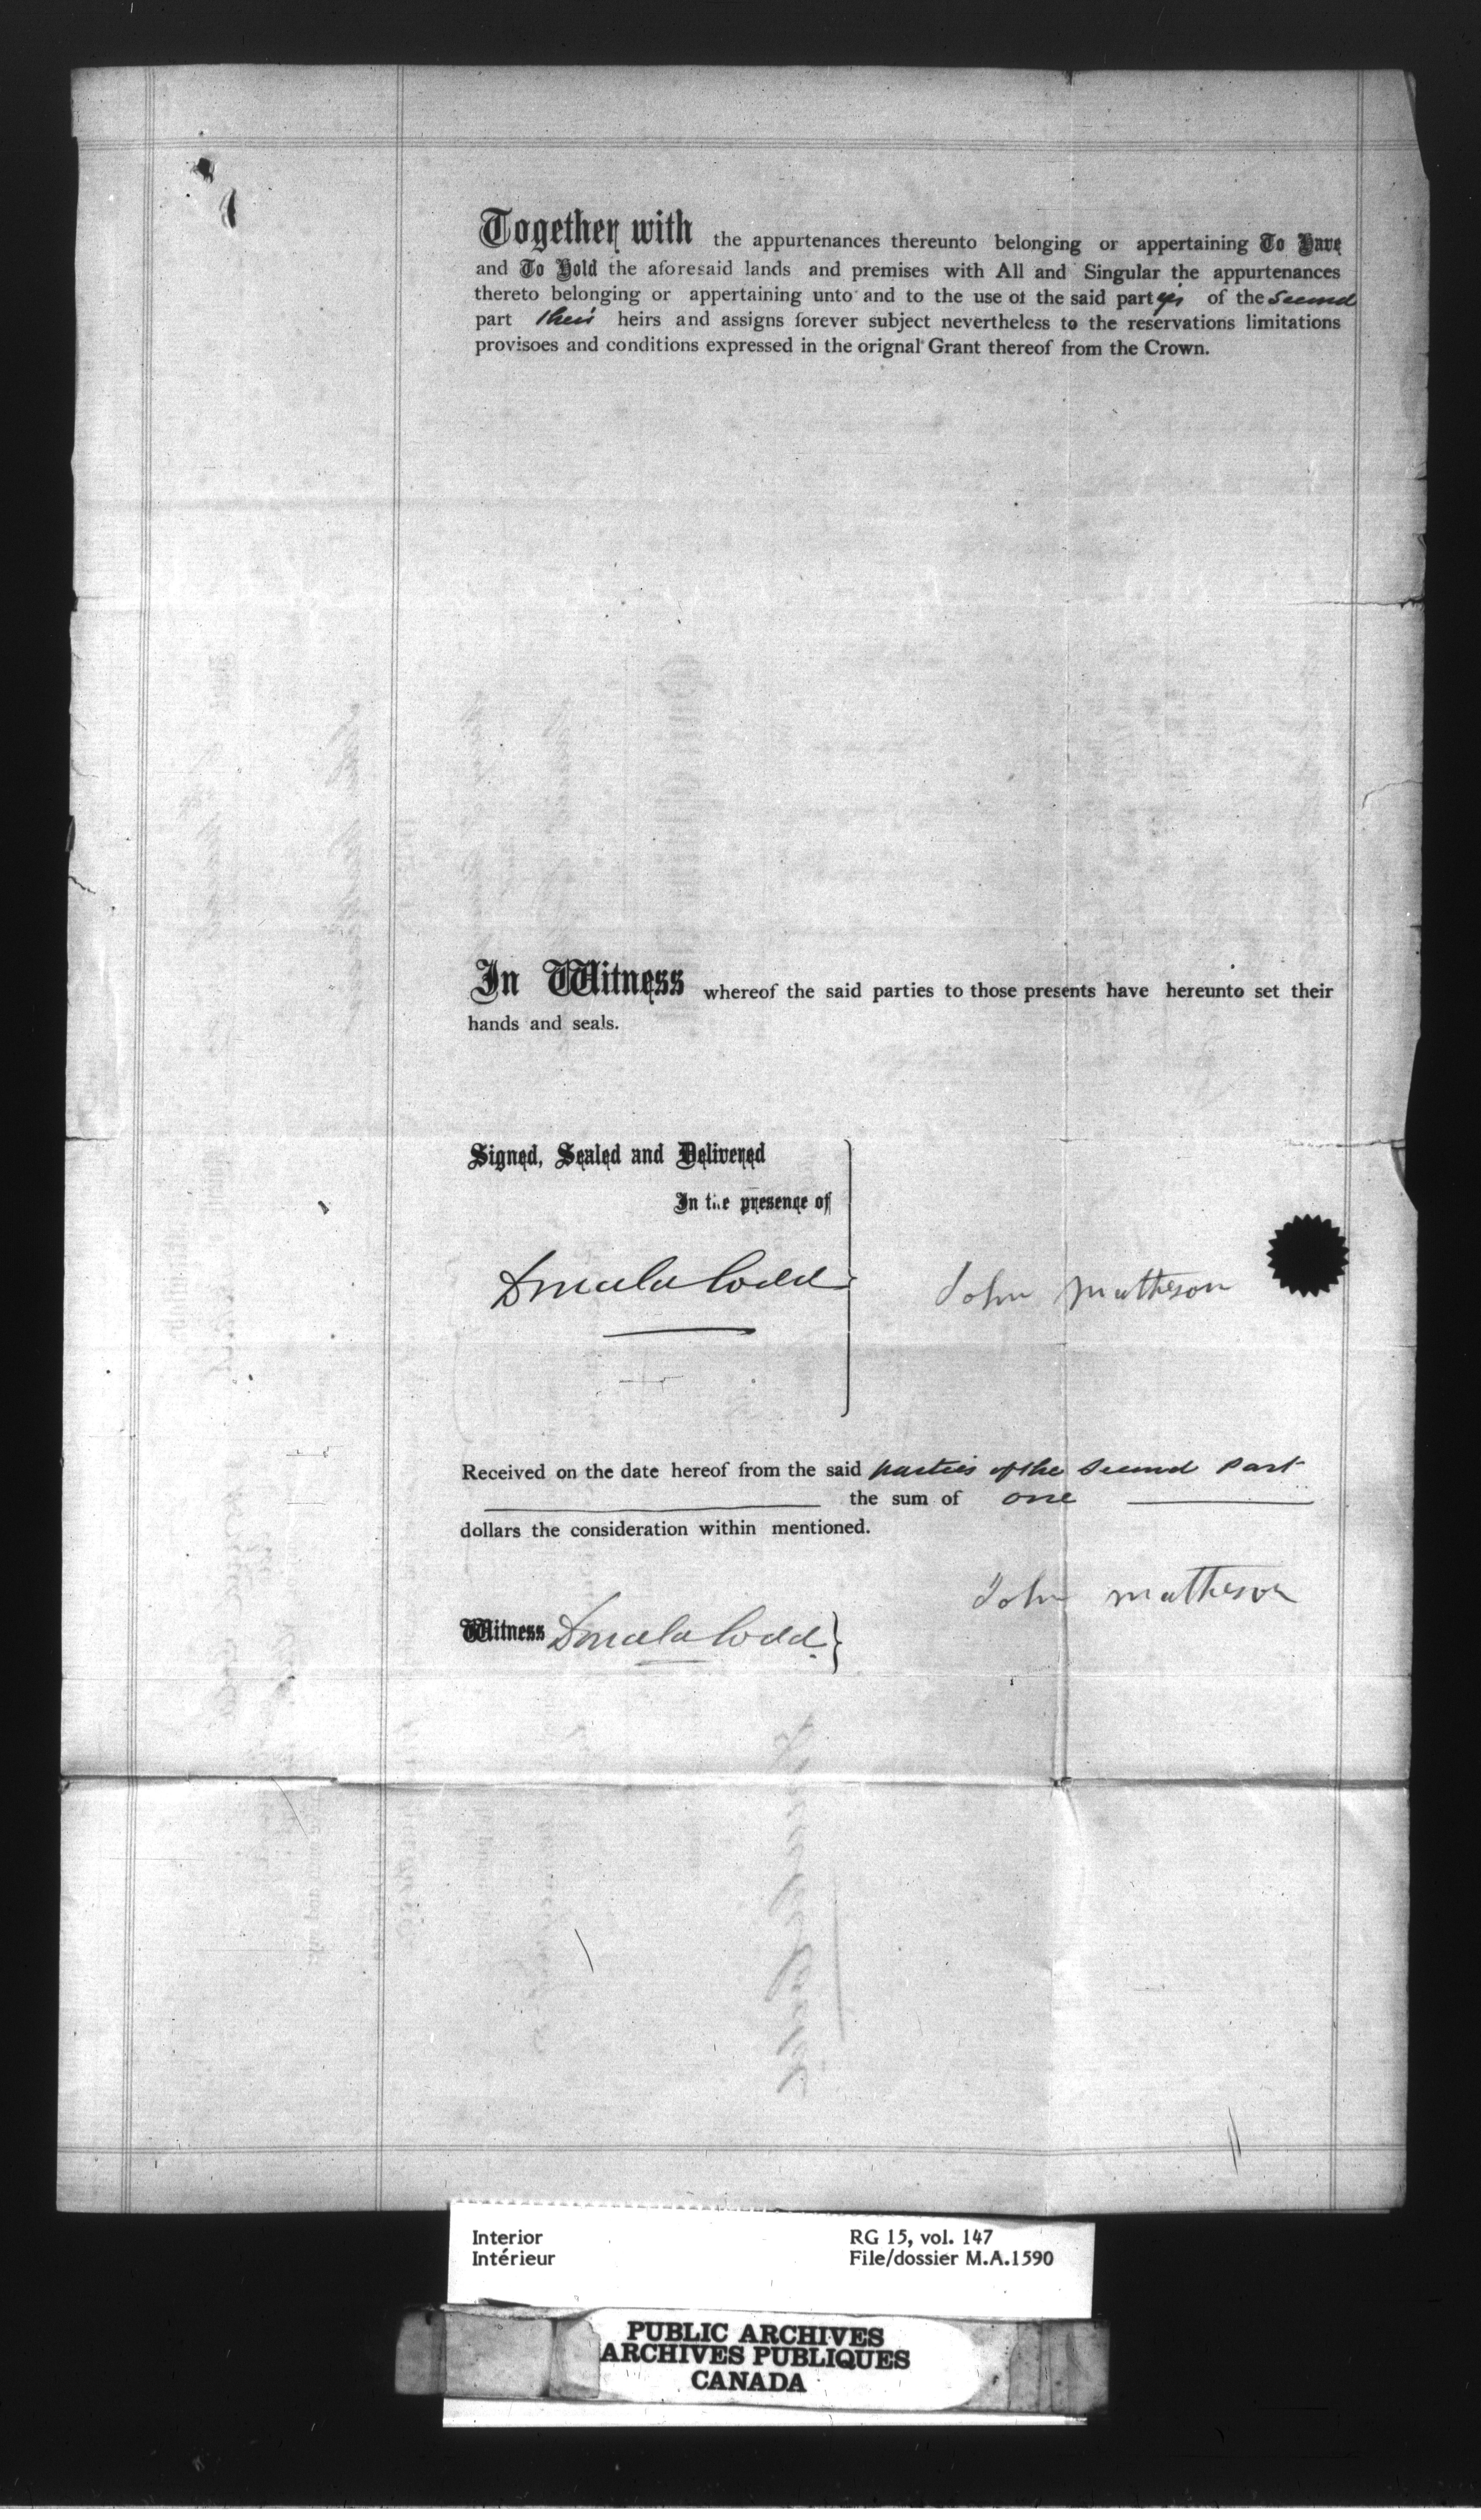 Together with the appurtenances thereunto belonging or appertaining To Have
and To Hold the aforesaid lands and premises with All and Singular the appurtenances
thereto belonging or appertaining unto and to the use of the said parties of the Second
part their heirs and assigns forever subject nevertheless to the reservations limitations
provisoes and conditions expressed in the orignal Grant thereof from the Crown.
In Witness whereof the said parties to those presents have hereunto set their
hands and seals.
Signed, Sealed and Delivered
In the presence of
Donald Codd
John Matheson
Received on the date hereof from the said parties of the Second part
the sum of one
dollars the consideration within mentioned.
John Matheson
Witness Donald Codd
Interior RG 15, vol. 147
Intérieur File/dossier M.A.1590
PUBLIC ARCHIVES
ARCHIVES PUBLIQUES
CANADA